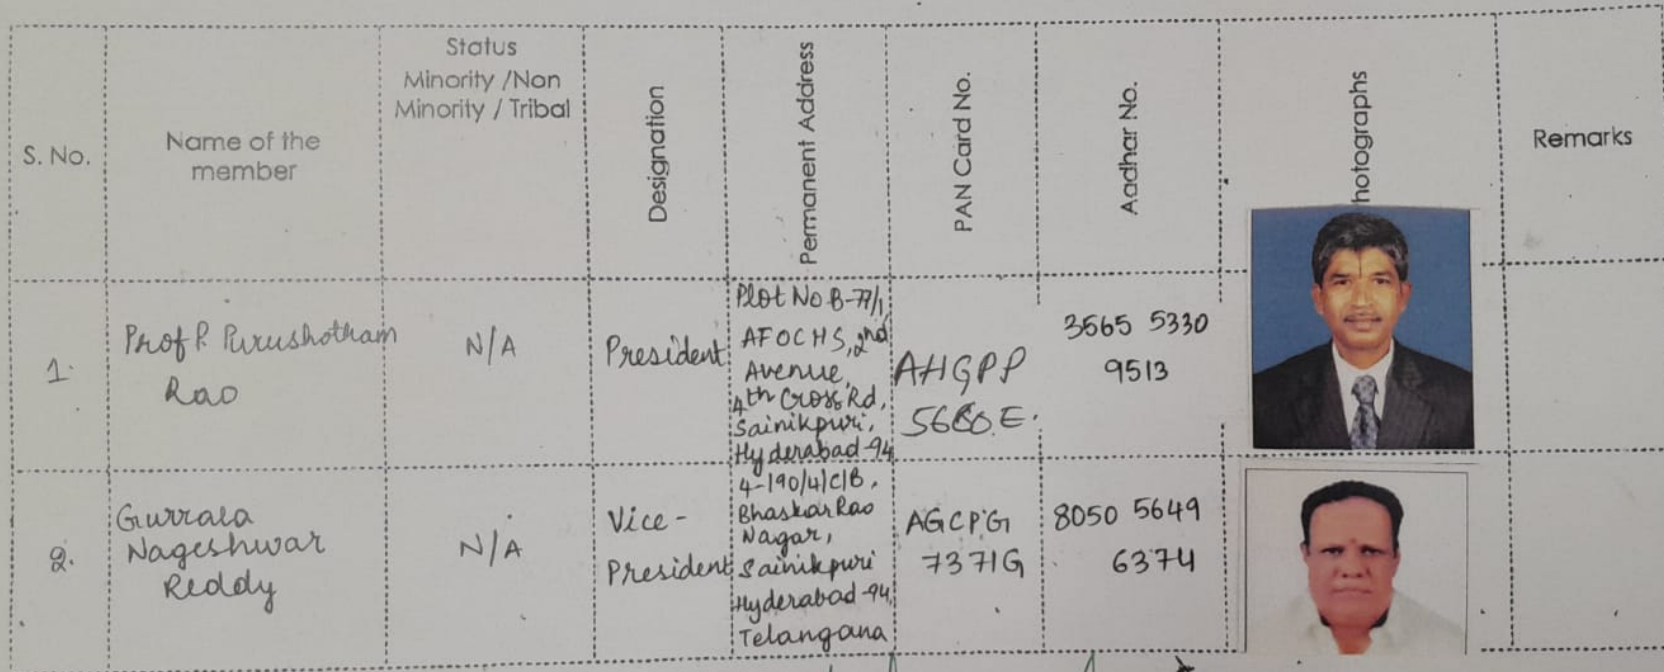 S. No.
Name of the
member
Status
Minority /Non
Minority / Tribal
Designation
Permanent Address
PAN Card No.
Aadhar No.
hotographs
Remarks
1.
Prof P. Purushotham
Rao
N/A
President
Plot No B-77/1,
AFOCHS, 2nd
Avenue,
4th Cross Rd,
Sainikpuri,
Hyderabad-94
AHGPP
3565 5330
9513
2.
Gurrala
Nageshwar
Reddy
N/A
Vice-
President
4-190/4/C/B,
Bhaskar Rao
Nagar,
Sainikpuri
Hyderabad-94,
Telangana
AGCPG
7371G
8050 5649
6374